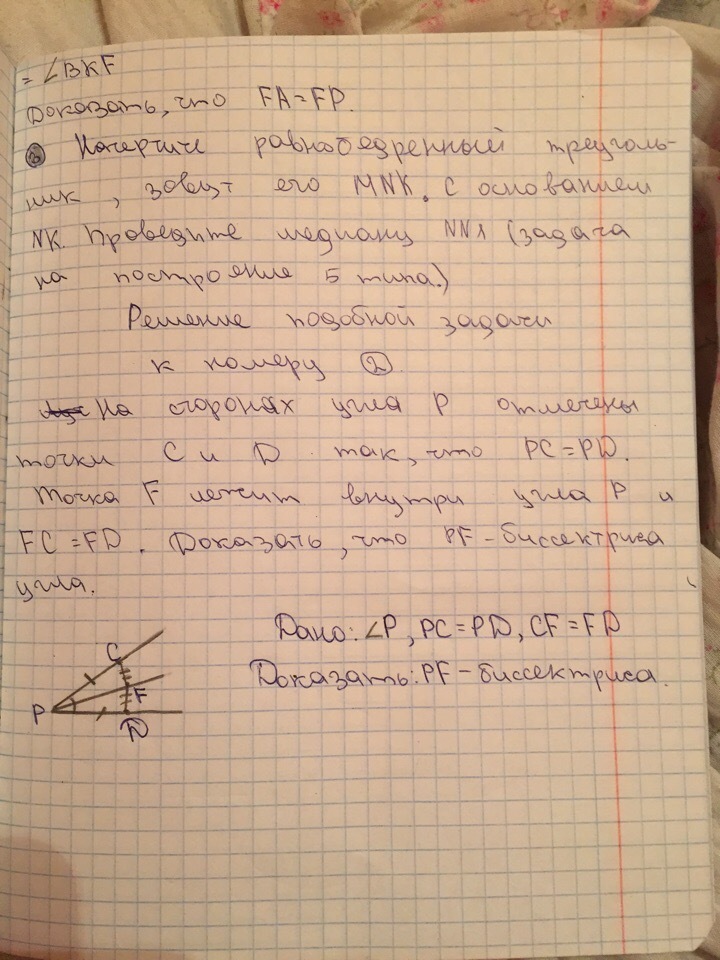 = ∠BKF
Доказать, что FA = FP.
③ Начертите равнобедренный треуголь-
ник, зовут его MNK. с основанием
NK. Проведите медиану NN1 (задача
на построение 5 типа.)
Решение подобной задачи
к номеру ②.
На сторонах угла P отмечены
точки C и D так, что PC = PD.
Точка F лежит внутри угла P и
FC = FD. Доказать, что PF - биссектриса
угла.
Дано: ∠P, PC = PD, CF = FD
Доказать: PF - биссектриса.
C
F
P
D